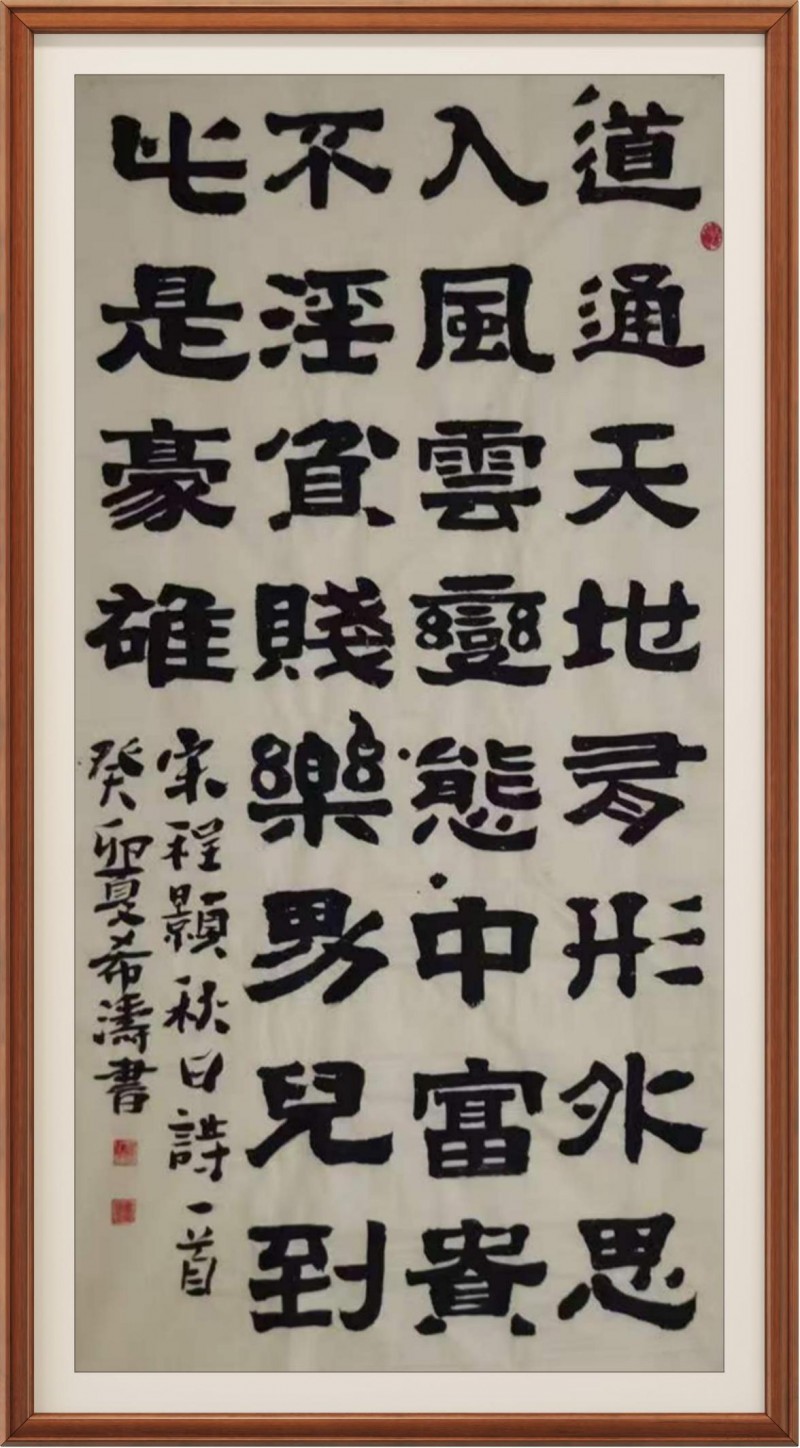 道通天地有形外思
入風雲變態中富貴
不淫貧賤樂男兒到
此是豪雄
宋程顥秋日詩一首
癸卯夏希濤書